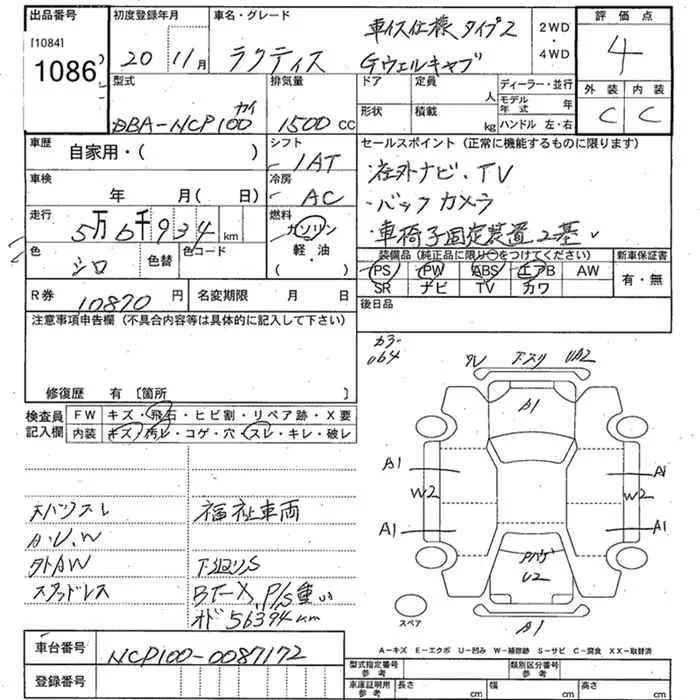 出品番号
[1084]
1086
初度登録年月
20年 11月
車名・グレード
ラクティス
車イス仕様 タイプ2
Gウェルキャブ
2WD
・
4WD
評価点
4
外装
内装
C
C
型式
DBA-NCP100 カイ
排気量
1500 cc
ドア
定員
人
形状
積載
kg
ディーラー・並行
モデル年式 年
ハンドル 左・右
車歴
自家用・( )
シフト
IAT
セールスポイント(正常に機能するものに限ります)
社外ナビ、TV
・バックカメラ
・車椅子固定装置2基
車検
年 月( 日)
冷房
AC
走行
5万6千934km
燃料
ガソリン
軽・油
( )
色
シロ
色替
色コード
装備品(純正品に限り○をつけてください)
新車保証書
PS PW ABS エアB AW
SR ナビ TV カワ
有・無
R券
10870円
名変期限 月 日
後日品
注意事項申告欄(不具合内容等は具体的に記入して下さい)
カラー
064
修復歴 有〔箇所 〕
検査員
記入欄
FW
キズ・飛石・ヒビ割・リペア跡・X要
内装
キズ・汚レ・コゲ・穴・スレ・キレ・破レ
下スリ
U2
A1
A1
W2
A1
A1
W2
A1
U2
A1
スペア
福祉車両
A・U、W
外AW
スタッドレス
下回リS
BT-X、P/S重い
オド 56394km
A-キズ E-エクボ U-凹み W-補修跡 S-サビ C-腐食 XX-取替済
車台番号
NCP100-0087172
登録番号
型式指定番号
参考
類別区分番号
参考
車庫証明用
参考
長さ cm
幅 cm
高さ cm